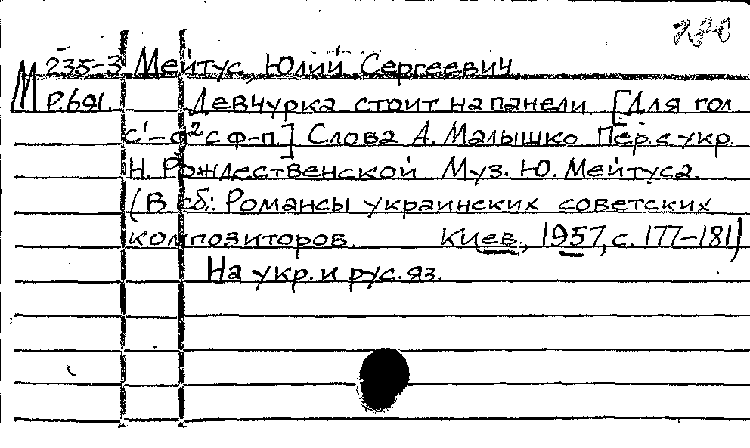 М 235-3 Мейтус, Юлий Сергеевич
Р.691. Девчурка стоит на панели. [Для гол.
с¹–а²с ф-п.] Слова А. Малышко Пер. с укр.
Н. Рождественской Муз. Ю. Мейтуса.
(В сб.: Романсы украинских советских
композиторов. Киев, 1957, с. 177–181)
На укр. и рус. яз.